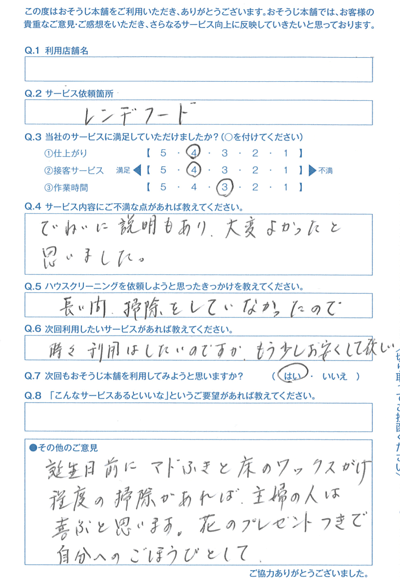 この度はおそうじ本舗をご利用いただき、ありがとうございます。おそうじ本舗では、お客様の
貴重なご意見・ご感想をいただき、さらなるサービス向上に反映していきたいと思っております。
Q.1 利用店舗名
Q.2 サービス依頼箇所
レンヂフード
Q.3 当社のサービスに満足していただけましたか？（○を付けてください）
①仕上がり 【 5 ・ 4 ・ 3 ・ 2 ・ 1 】
②接客サービス 満足 ◀【 5 ・ 4 ・ 3 ・ 2 ・ 1 】▶ 不満
③作業時間 【 5 ・ 4 ・ 3 ・ 2 ・ 1 】
Q.4 サービス内容にご不満な点があれば教えてください。
ていねいに説明もあり、大変よかったと
思いました。
Q.5 ハウスクリーニングを依頼しようと思ったきっかけを教えてください。
長い間、掃除をしていなかったので
Q.6 次回利用したいサービスがあれば教えてください。
時々利用はしたいのですが、もう少しお安くして欲しい
Q.7 次回もおそうじ本舗を利用してみようと思いますか？ （ はい ・ いいえ ）
Q.8 「こんなサービスあるといいな」というご要望があれば教えてください。
●その他のご意見
誕生日前に マドふきと床のワックスがけ
程度の掃除があれば、主婦の人は
喜ぶと思います。花のプレゼントつきで
自分へのごほうびとして
ご協力ありがとうございました。